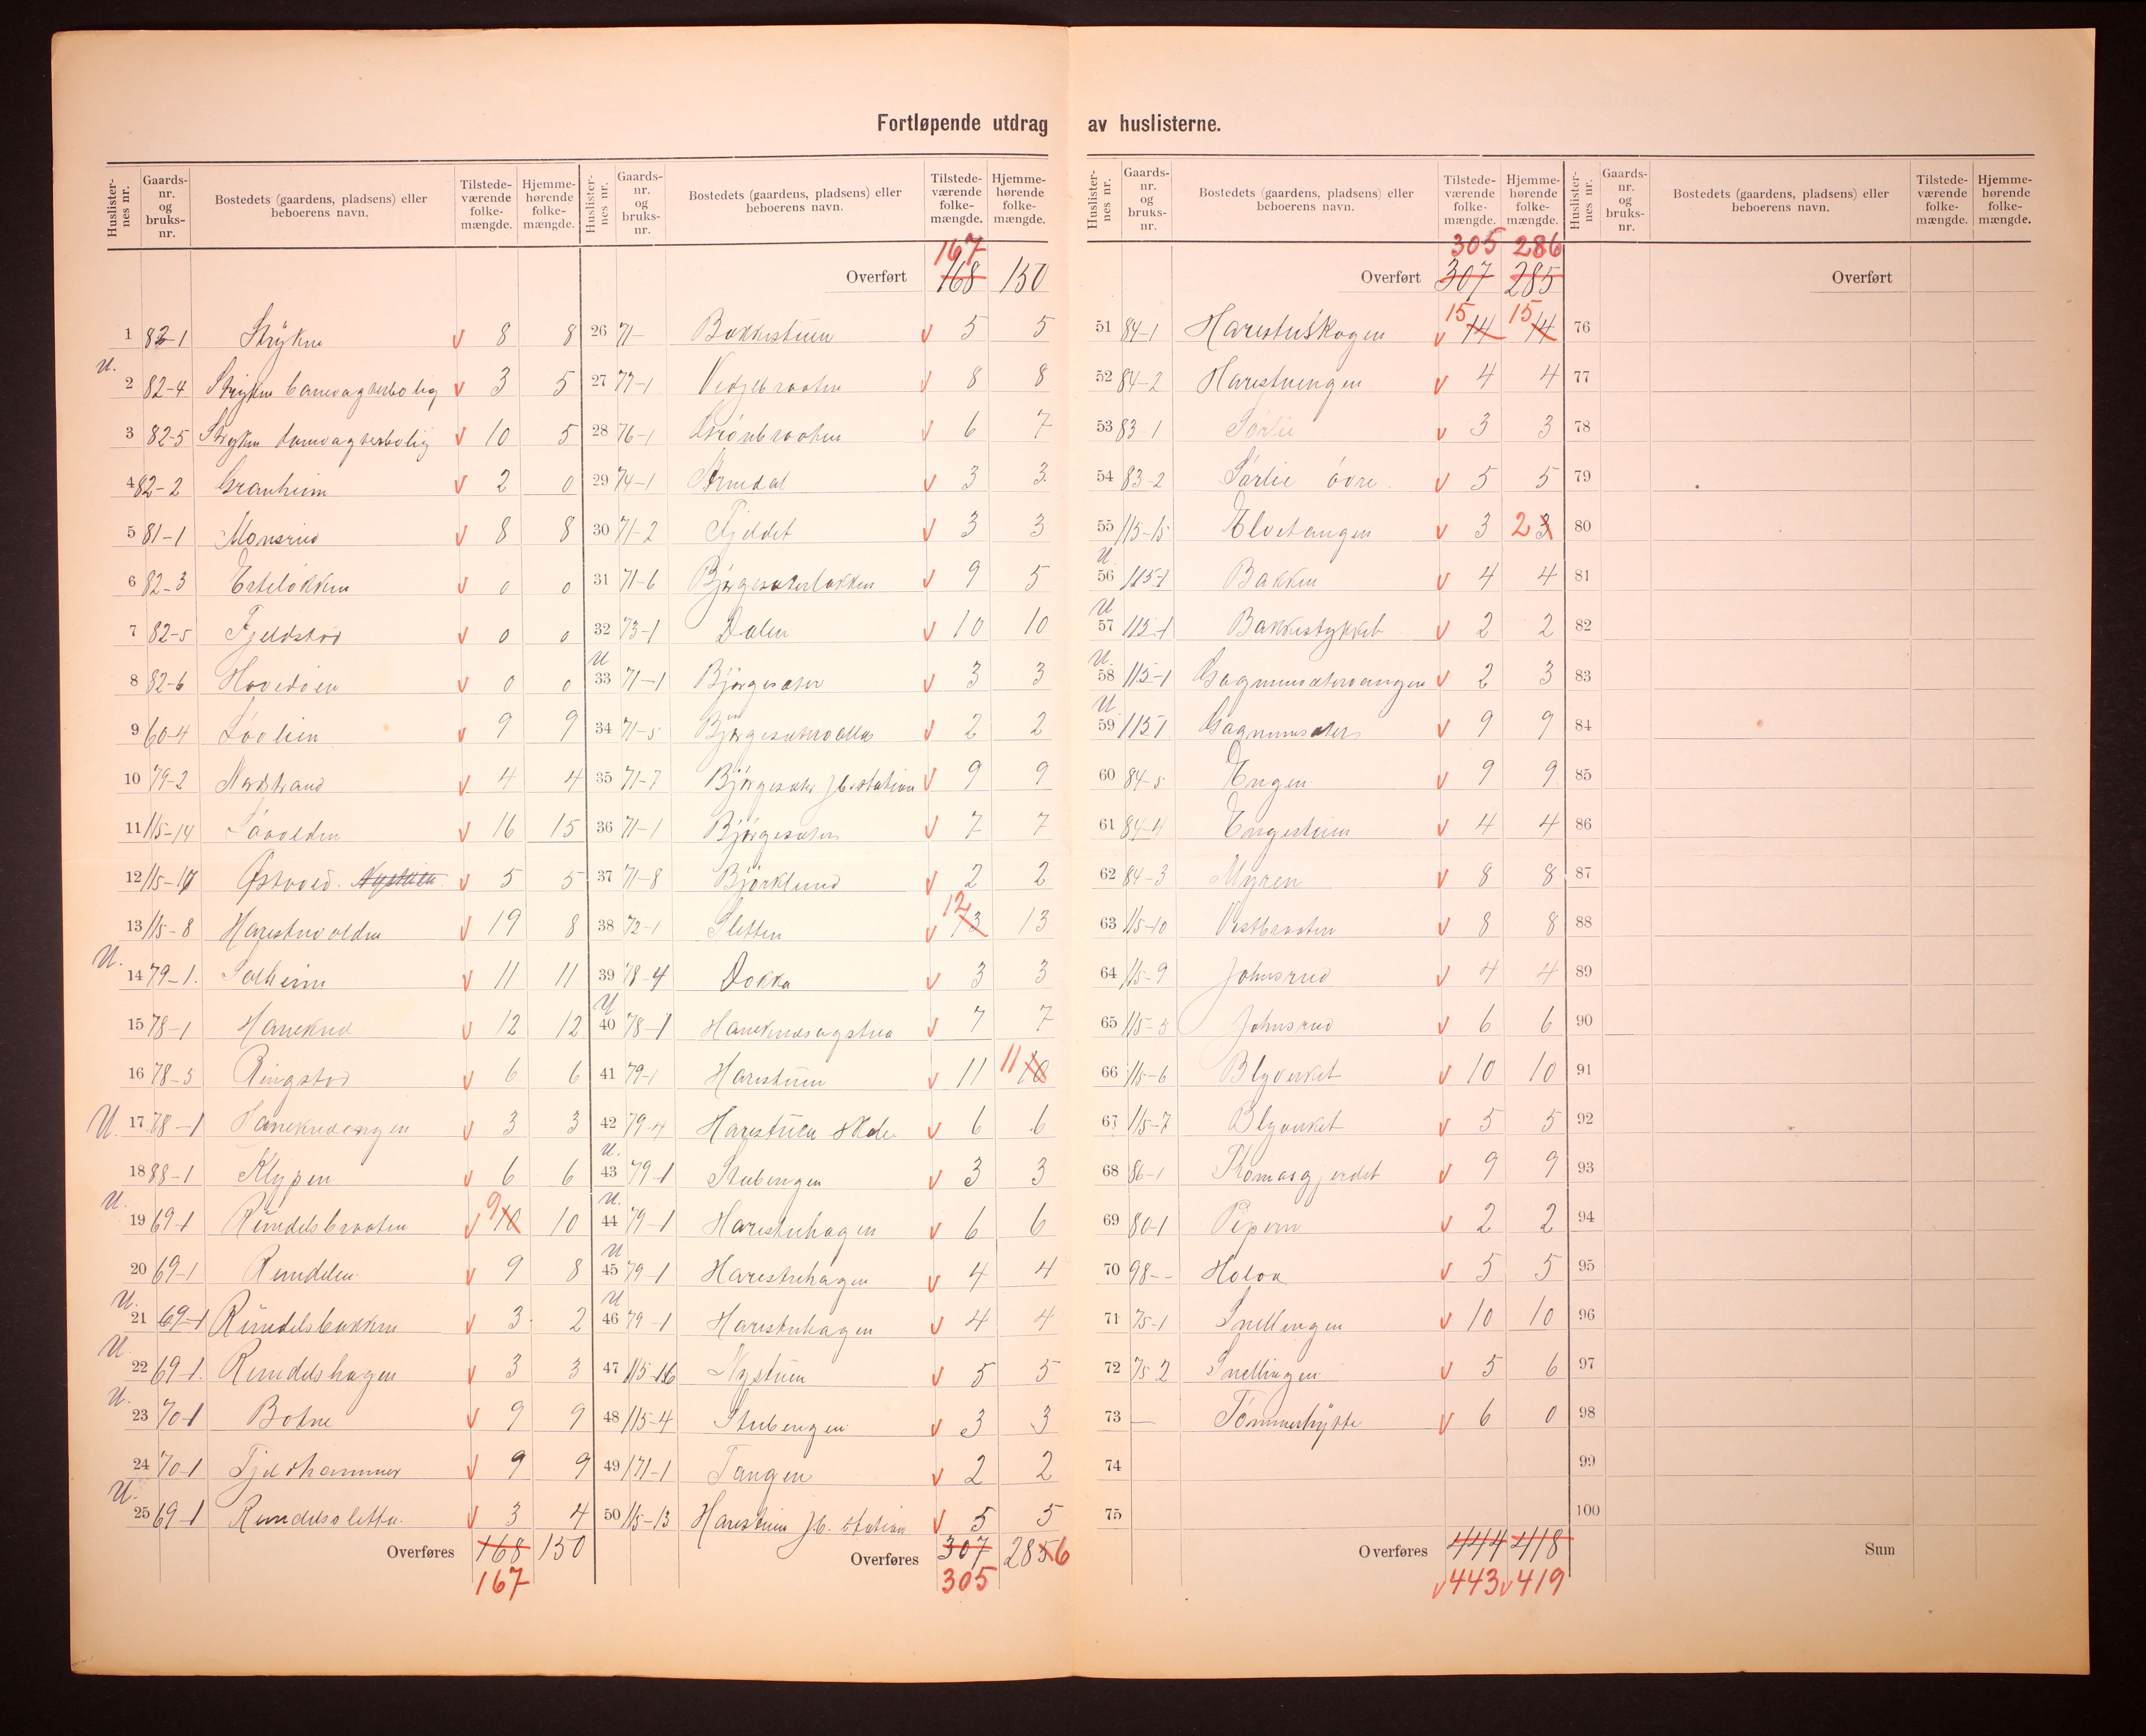 Fortløpende utdrag av huslisterne.
Huslister-nes nr. Gaards-nr. og bruks-nr. Bostedets (gaardens, pladsens) eller beboerens navn. Tilstede-værende folke-mængde. Hjemme-hørende folke-mængde.
1 82-1 Stryken v 8 8
U. 2 82-4 Stryken banevagterbolig v 3 5
3 82-5 Stryken banevagterbolig v 10 5
4 82-2 Granheim v 2 0
5 81-1 Monsrud v 8 8
6 82-3 v 0 0
7 82-5 Fjeldstad v 0 0
8 82-6 v 0 0
9 60-4 Løvlien v 9 9
10 79-2 Nordstrand v 4 4
11 115-14 v 16 15
12 115-17 Østvold. Nystuen v 5 5
13 115-8 Harestuvolden v 19 8
U. 14 79-1. Solheim v 11 11
15 78-1 Haneknæ v 12 12
16 78-3 Ringstad v 6 6
U. 17 78-1 Haneknæengen v 3 3
18 88-1 Klypen v 6 6
U. 19 69-1 Rundelsbraaten v 9 10 10
20 69-1 Rundelen v 9 8
U. 21 69-1 Rundelsbakken v 3 2
U. 22 69-1. Rundelshagen v 3 3
U. 23 70-1 Botne v 9 9
24 70-1 Fjeldhammer v 9 9
U. 25 69-1 Rundelsletta. v 3 4
Overføres 168 150
167
Huslister-nes nr. Gaards-nr. og bruks-nr. Bostedets (gaardens, pladsens) eller beboerens navn. Tilstede-værende folke-mængde. Hjemme-hørende folke-mængde.
167
Overført 168 150
26 71- Bakkestuen v 5 5
27 77-1 v 8 8
28 76-1 Grönbraaten v 6 7
29 74-1 v 3 3
30 71-2 Fjeldet v 3 3
31 71-6 Björgesæterløkken v 9 5
32 73-1 Dalen v 10 10
U 33 71-1 Björgesæter v 3 3
34 71-5 v 2 2
35 71-7 Björgesæter Jb. station v 9 9
36 71-1 Björgesæter v 7 7
37 71-8 Björklund v 2 2
38 72-1 Sletten v 12 13 13
39 78-4 Dokka v 3 3
U 40 78-1 v 7 7
41 79-1 Harestuen v 11 11 10
42 79-4 Harestuen skole v 6 6
U. 43 79-1 Stubengen v 3 3
U. 44 79-1 Harestuhagen v 6 6
U 45 79-1 Harestuhagen v 4 4
U 46 79-1 Harestuhagen v 4 4
47 115-16 Nystuen v 5 5
48 115-4 Stubengen v 3 3
49 171-1 Tangen v 2 2
50 115-13 Harestuen Jb. station v 5 5
Overføres 307 2856
305
Huslister-nes nr. Gaards-nr. og bruks-nr. Bostedets (gaardens, pladsens) eller beboerens navn. Tilstede-værende folke-mængde. Hjemme-hørende folke-mængde.
305 286
Overført 307 285
51 84-1 Harestuskogen v 15 14 15 14
52 84-2 Harestuengen v 4 4
53 83-1 Sørlie v 3 3
54 83-2 Sørlie övre. v 5 5
55 115-15 Elvetangen v 3 2 3
U. 56 115-1 Bakken v 4 4
U 57 115-1 Bakkestykket v 2 2
U. 58 115-1 Gagnumsætervangen v 2 3
U. 59 115-1 Gagnumsæter v 9 9
60 84-5 Engen v 9 9
61 84-4 Engestuen v 4 4
62 84-3 Myren v 8 8
63 115-10 Vestbraaten v 8 8
64 115-9 Johnsrud v 4 4
65 115-5 Johnsrud v 6 6
66 115-6 Blyverket v 10 10
67 115-7 Blyverket v 5 5
68 86-1 Thomasgjerdet v 9 9
69 80-1 Pipern v 2 2
70 98-- Holoa v 5 5
71 75-1 Snellingen v 10 10
72 75 2 Snellingen v 5 6
73 — Tømmerhytte v 6 0
74
75
Overføres 444 418
v 443 v 419
Huslister-nes nr. Gaards-nr. og bruks-nr. Bostedets (gaardens, pladsens) eller beboerens navn. Tilstede-værende folke-mængde. Hjemme-hørende folke-mængde.
Overført
76
77
78
79
80
81
82
83
84
85
86
87
88
89
90
91
92
93
94
95
96
97
98
99
100
Sum